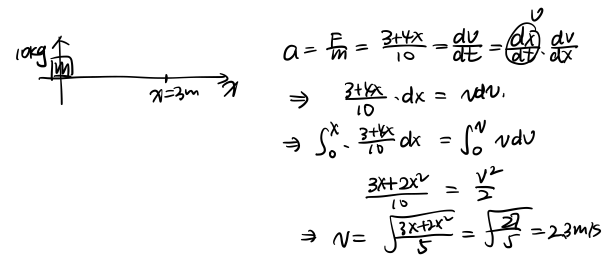 10kg
m
x=3m
x
v
a = F/m = (3+4x)/10 = dv/dt = dx/dt · dv/dx
⇒ (3+4x)/10 · dx = vdv.
⇒ ∫₀ˣ · (3+4x)/10 dx = ∫₀ᵛ vdv
(3x+2x²)/10 = v²/2
⇒ v = √((3x+2x²)/5) = √(27/5) = 2.3m/s